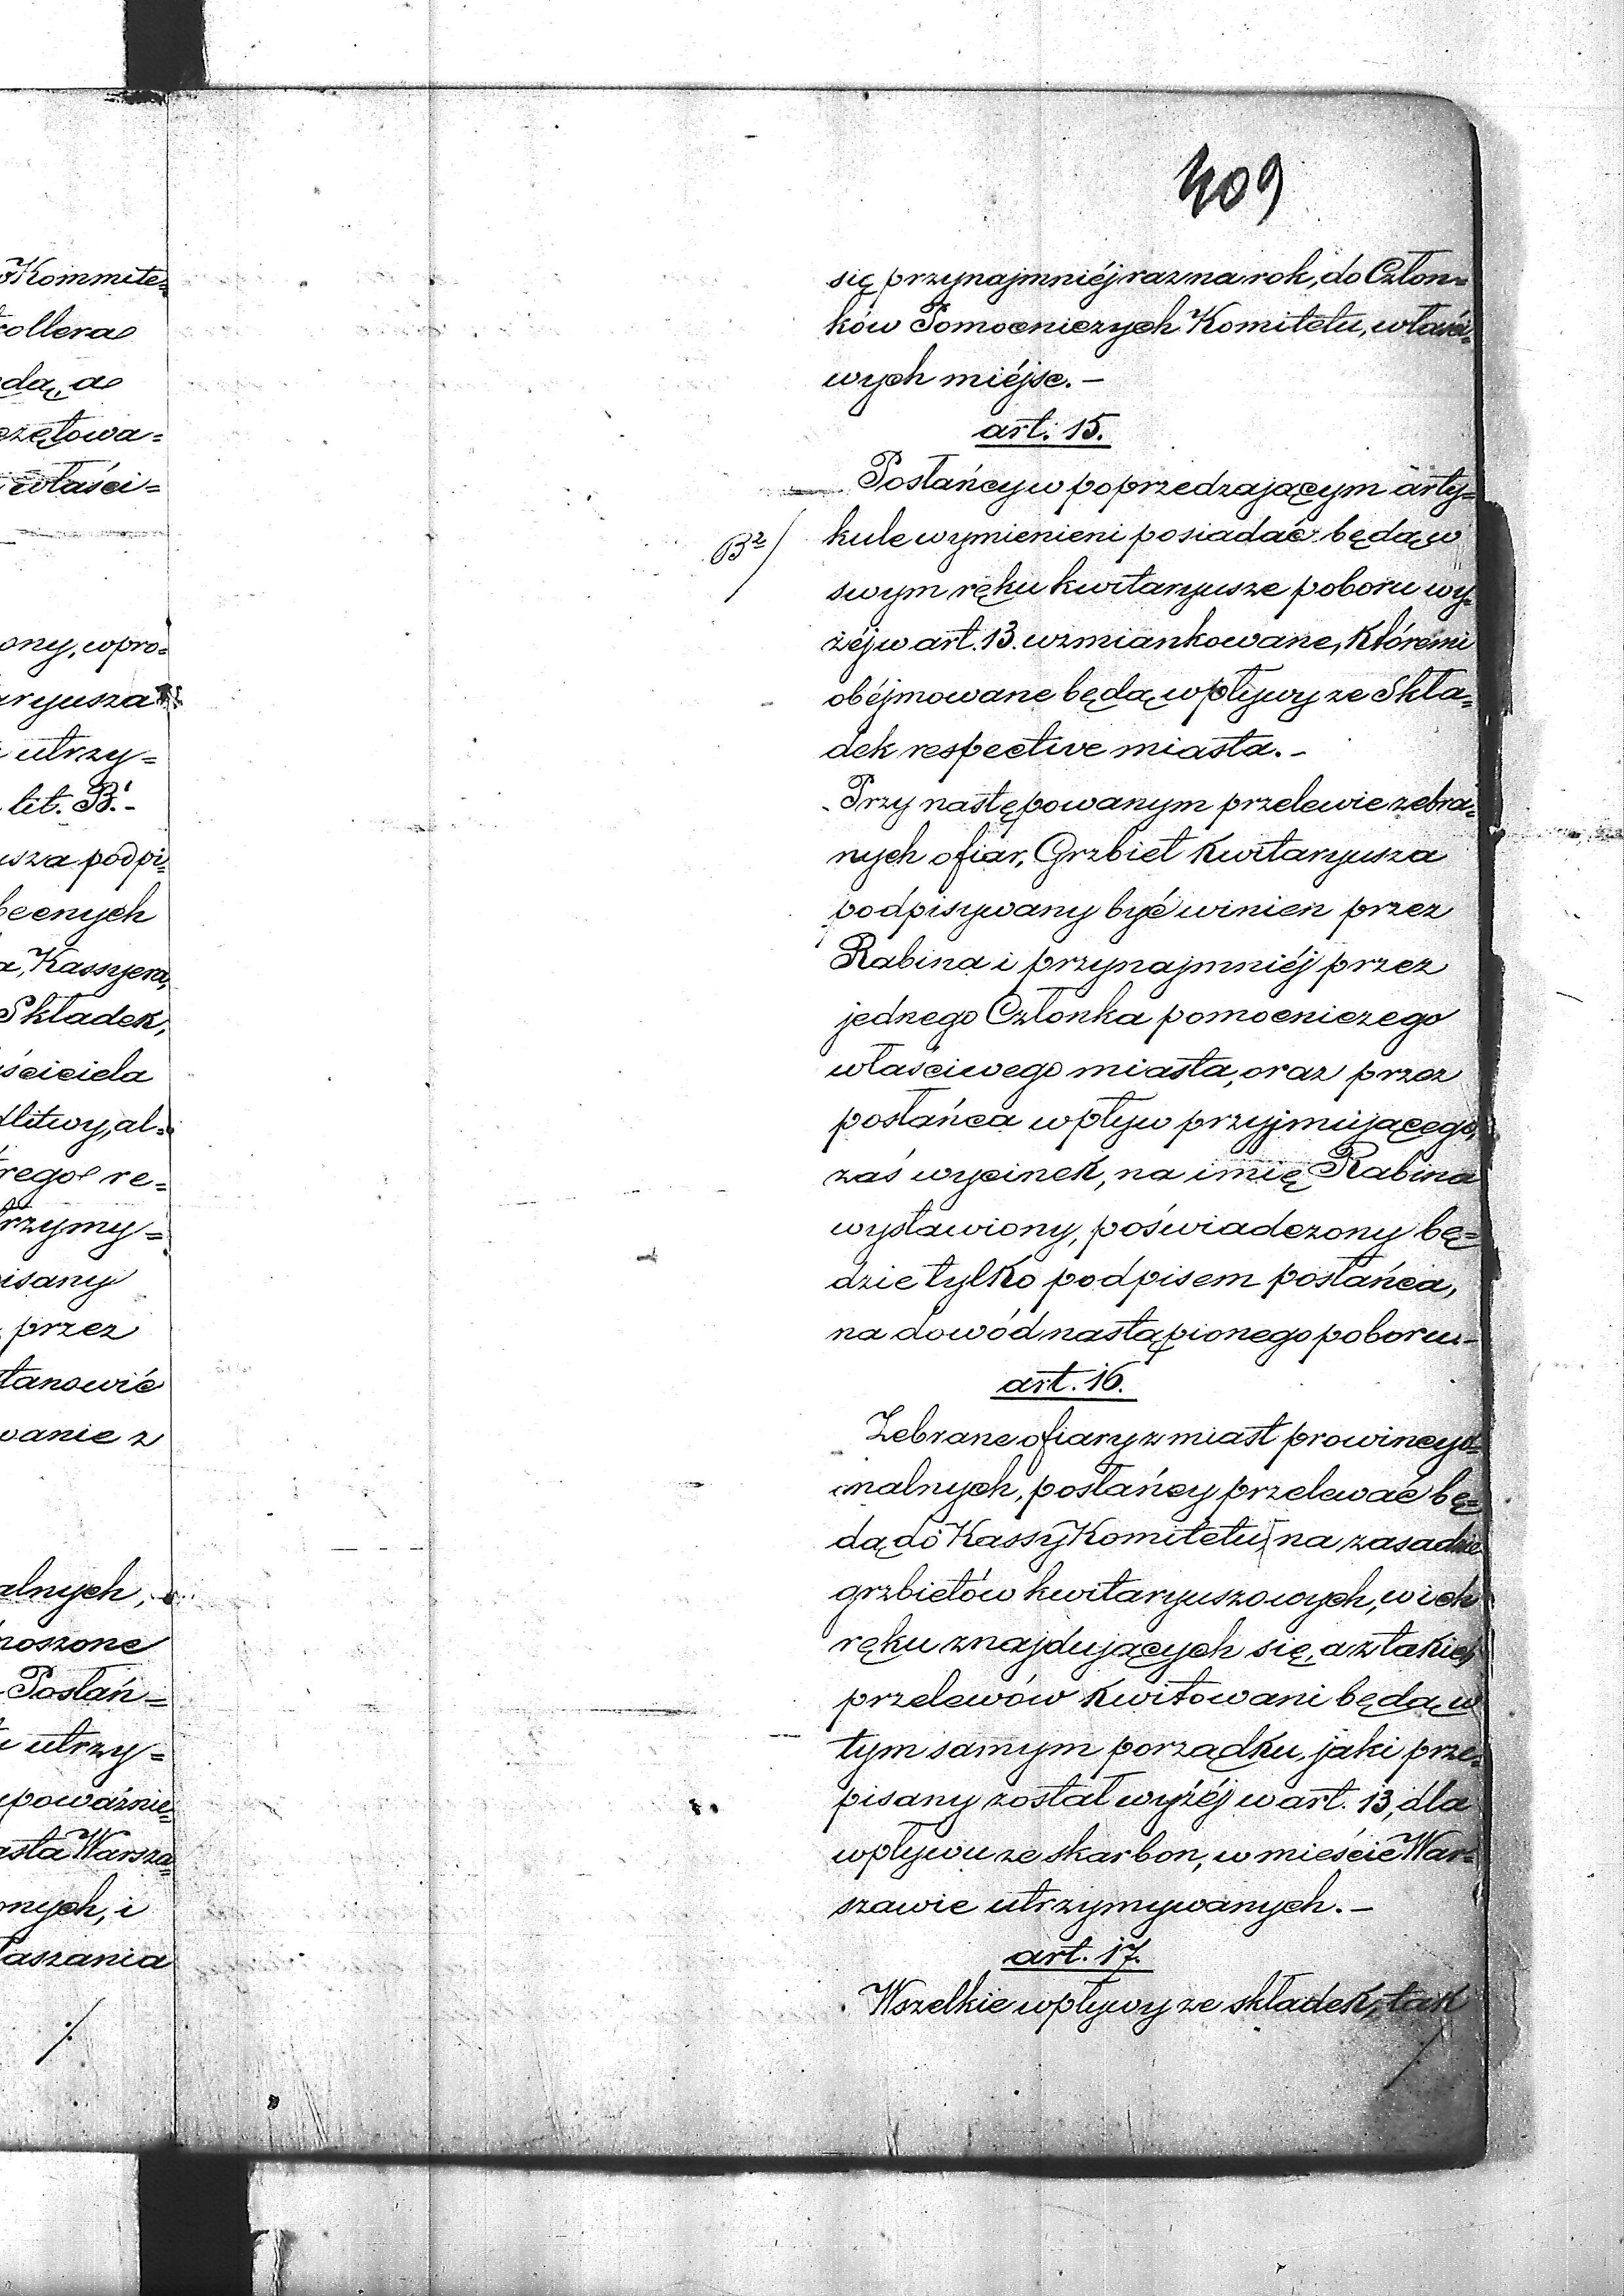 409
się przynajmniéj raz na rok, do Człon=
ków Pomocniczych Komitetu, właści=
wych miéjsc. –
art. 15.
Posłańcy w poprzedzającym arty=
B2/
kule wymienieni posiadać będą w
swym ręku kwitaryusze poboru wy=
żéj w art. 13. wzmiankowane, któremi
obéjmowane będą wpływy ze Skła=
dek respective miasta. –
Przy następowanym przelewie zebra=
nych ofiar, Grzbiet Kwitaryusza
podpisywany być winien przez
Rabina i przynajmniéj przez
jednego Członka pomocniczego
właściwego miasta, oraz przez
posłańca wpływ przyjmującego,
zaś wycinek, na imię Rabina
wystawiony, poświadczony bę=
dzie tylko podpisem posłańca,
na dowód nastąpionego poboru –
art. 16.
Zebrane ofiary z miast prowincyo=
nalnych, posłańcy przelewać bę=
dą do Kassy Komitetu, na zasadzie
grzbietów kwitaryuszowych, w ich
ręku znajdujących się, a z takich
przelewów kwitowani będą w
tym samym porządku, jaki prze=
pisany został wyżéj w art. 13, dla
wpływu ze skarbon, w mieście War=
szawie utrzymywanych. –
art. 17.
Wszelkie wpływy ze składek, tak
Kommite=
ollera
dą, a
czętowa=
właści=
ony, wpro=
aryusza
utrzy=
lit. B1. –
usza podpi=
becnych
a, Kassyera,
Składek,
ściciela
dlitwy, al=
rego re=
trzymy=
isany
przez
tanowić
wanie z
alnych,
noszone
Posłań=
utrzy=
poważnie=
asta Warsza=
nych, i
łaszania